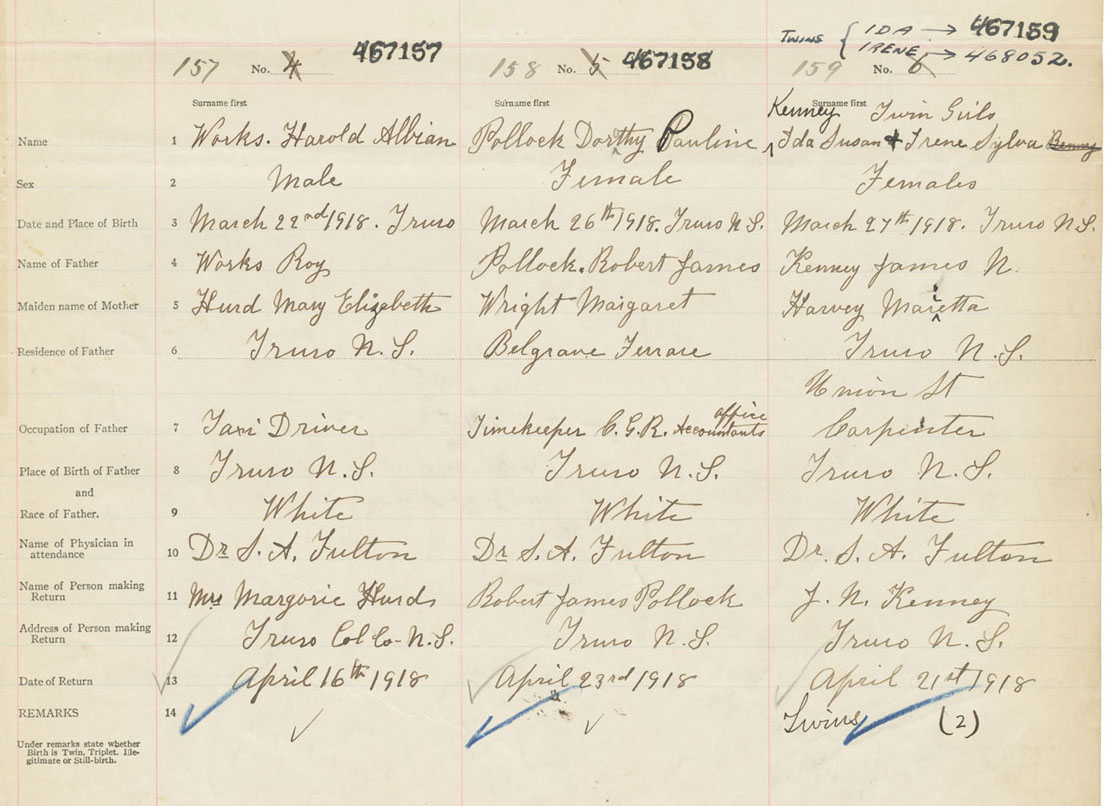 TWINS { IDA → 467159
IRENE → 468052.
157 No. 4 467157 158 No. 5 467158 159 No. 6
Surname first Surname first Surname first
Kenney Twin Girls
Name 1 Works. Harold Albian Pollock Dorthy Pauline Ida Susan + Irene Sylva Kenney
Sex 2 Male Female Females
Date and Place of Birth 3 March 22nd 1918. Truro March 26th 1918. Truro N.S. March 27th 1918. Truro N.S.
Name of Father 4 Works Roy Pollock. Robert James Kenney James N.
Maiden name of Mother 5 Hurd Mary Elizabeth Wright Margaret Harvey Marietta
Residence of Father 6 Truro N.S. Belgrave Terrace Truro N.S.
Union St
office
Occupation of Father 7 Taxi Driver Timekeeper C.G.R. Accountants Carpenter
Place of Birth of Father 8 Truro N.S. Truro N.S. Truro N.S.
and
Race of Father. 9 White White White
Name of Physician in
attendance 10 Dr S. A. Fulton Dr S. A. Fulton Dr. S. A. Fulton
Name of Person making
Return 11 Mrs Margorie Hurds Robert James Pollock J. N. Kenney
Address of Person making
Return 12 Truro Col Co- N.S. Truro N.S. Truro N.S.
Date of Return 13 April 16th 1918 April 23rd 1918 April 21st 1918
REMARKS 14 Twins (2)
Under remarks state whether
Birth is Twin. Triplet. Ille-
gitimate or Still-birth.